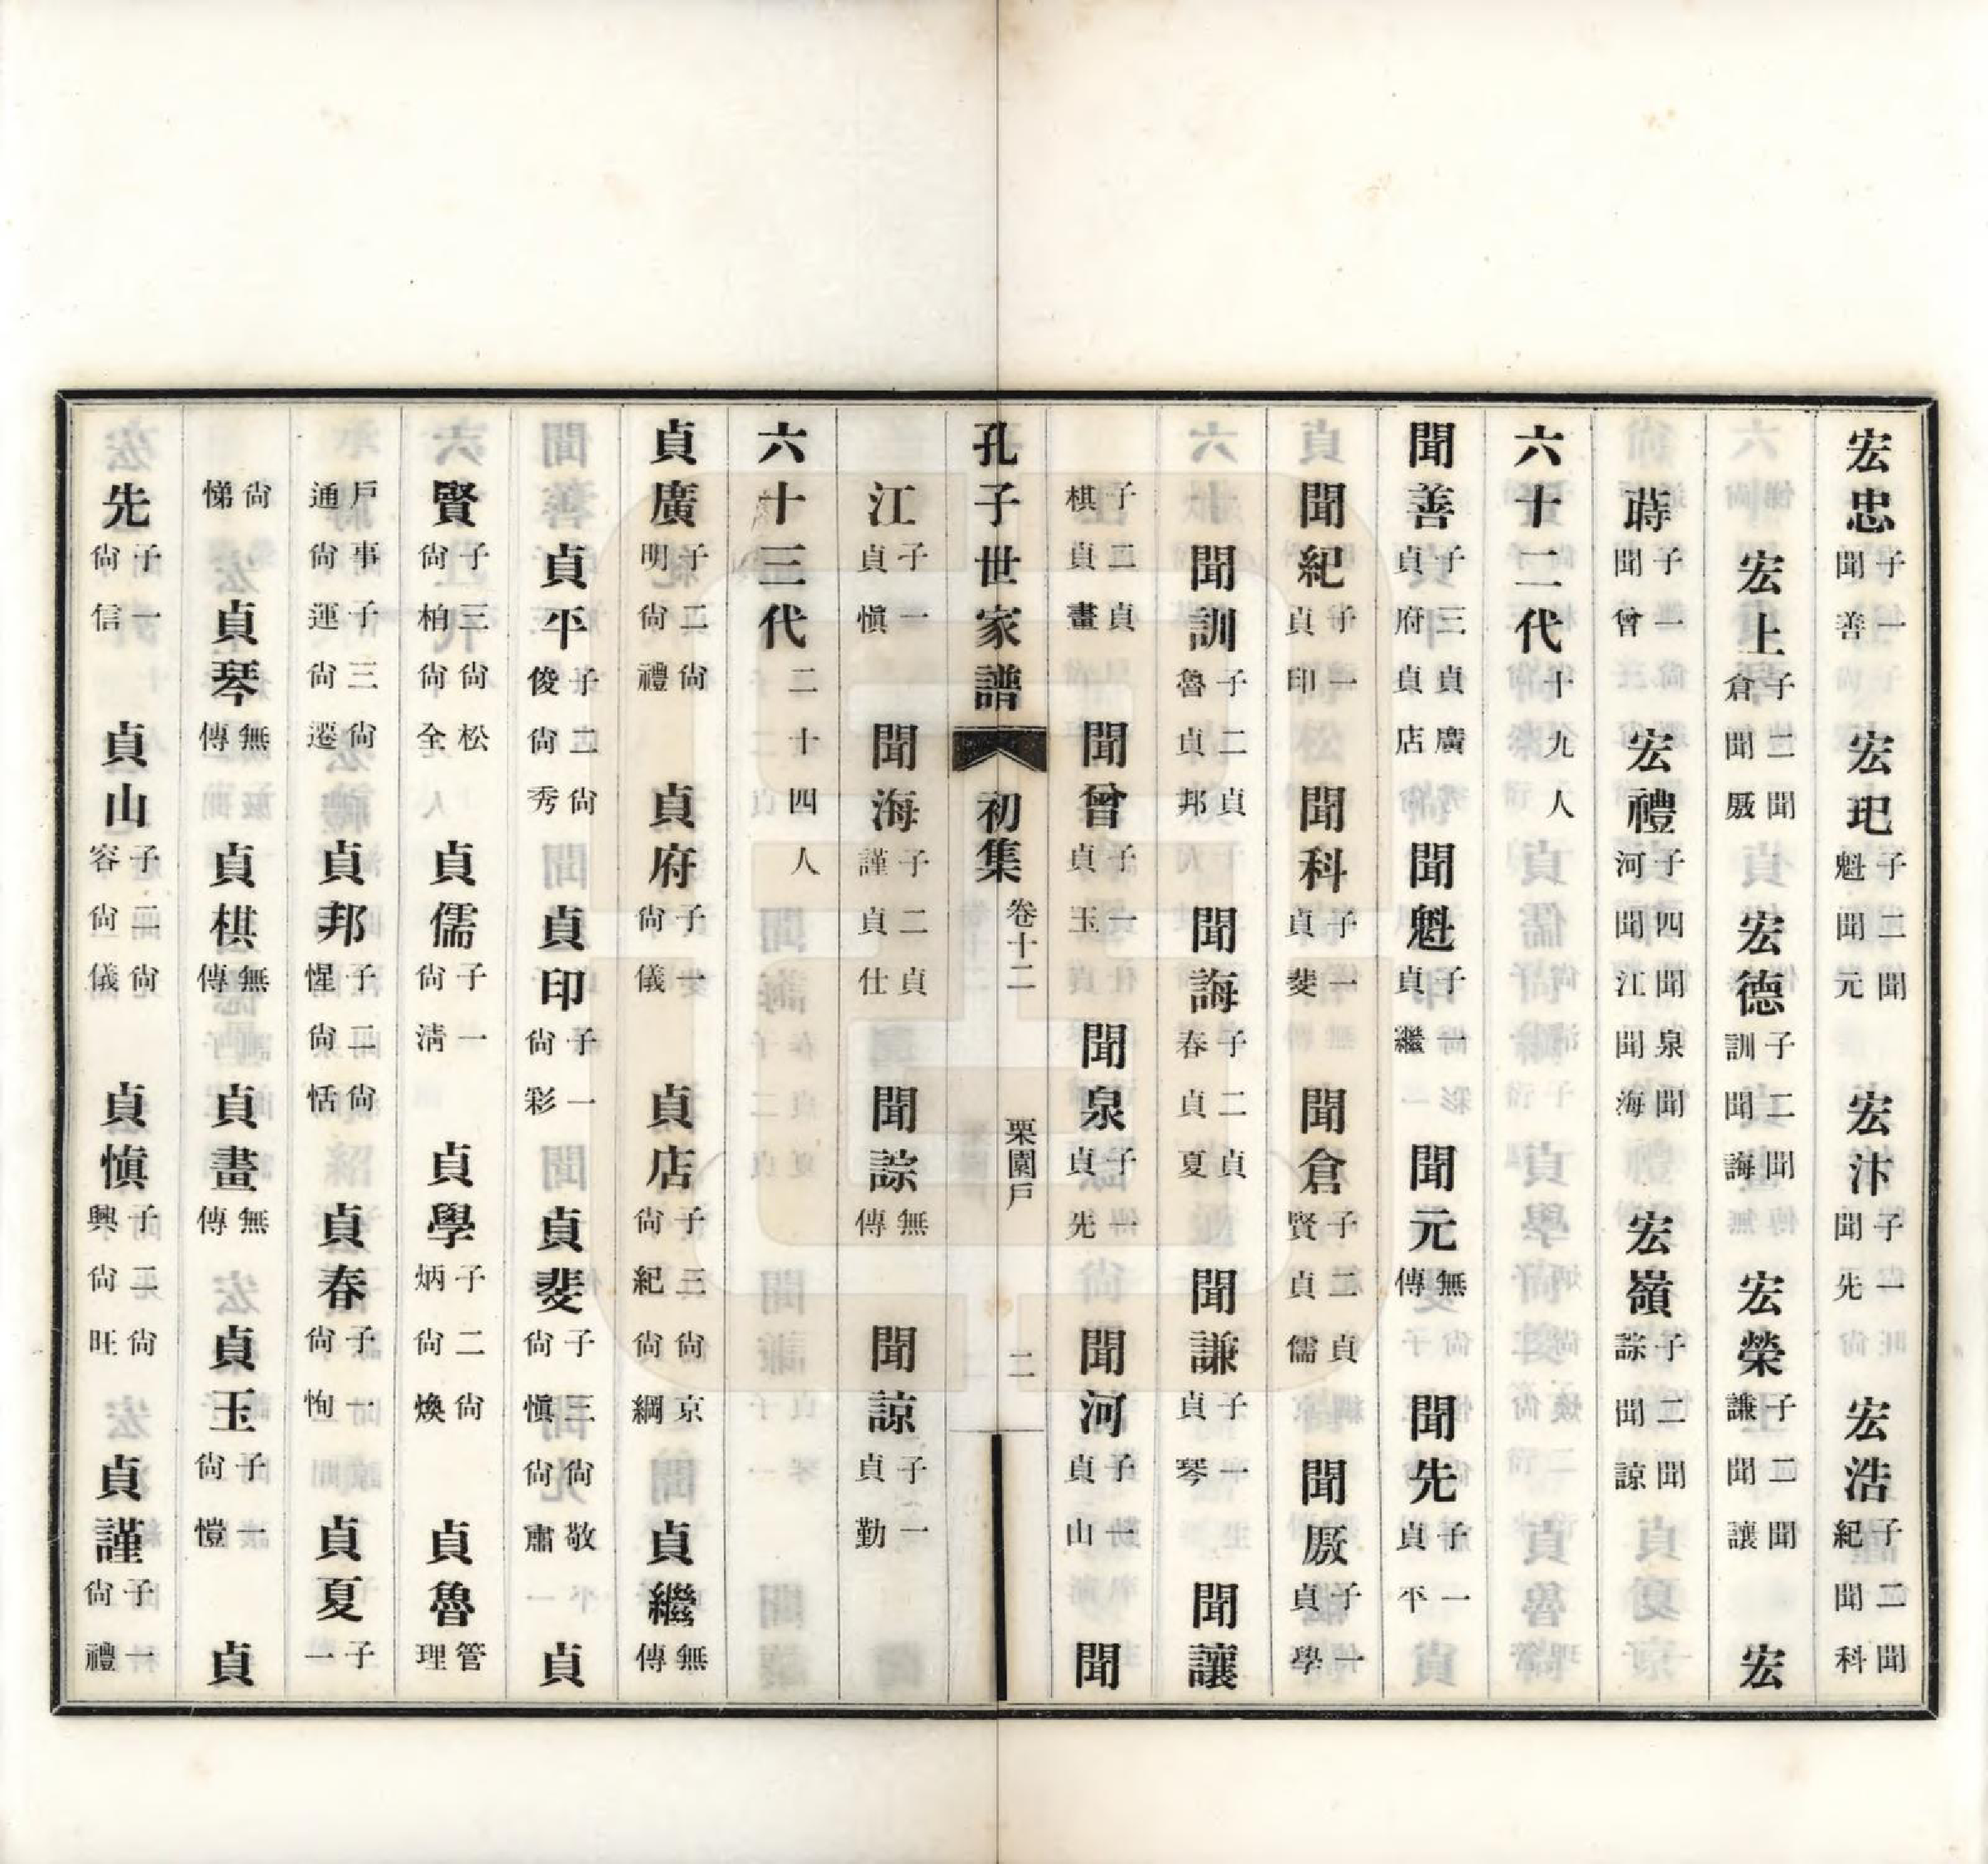 宏忠子一聞善　宏玘子二聞魁聞元　宏汴子一聞先　宏浩子二聞紀聞科
宏上子二聞倉聞厫　宏德子二聞訓聞誨　宏榮子二聞謙聞讓　宏
蒔子一聞曾　宏禮子四聞泉聞河聞江聞海　宏嶺子二聞誴聞諒
六十二代十九人
聞善子三貞廣貞府貞店　聞魁子一貞繼　聞元無傳　聞先子一貞平
聞紀子一貞印　聞科子一貞斐　聞倉子二貞賢貞儒　聞厫子一貞學
聞訓子二貞魯貞邦　聞誨子二貞春貞夏　聞謙子一貞琴　聞讓
子二貞棋貞畫　聞曾子一貞玉　聞泉子一貞先　聞河子一貞山　聞
孔子世家譜　初集　卷十二　栗園戶　二
江子一貞慎　聞海子二貞謹貞仕　聞誴無傳　聞諒子一貞勤
六十三代二十四人
貞廣子二尚明尚禮　貞府子一尚儀　貞店子三尚京尚紀尚綱　貞繼無傳
貞平子二尚俊尚秀　貞印子一尚彩　貞斐子三尚敬尚慎尚肅　貞
賢子三尚松尚柏尚全　貞儒子一尚淸　貞學子二尚炳尚煥　貞魯管理
戶事子三尚通尚運尚遷　貞邦子二尚惺尚恬　貞春子一尚恂　貞夏子一
尚悌　貞琴無傳　貞棋無傳　貞畫無傳　貞玉子一尚愷　貞
先子一尚信　貞山子二尚容尚儀　貞慎子二尚興尚旺　貞謹子一尚禮